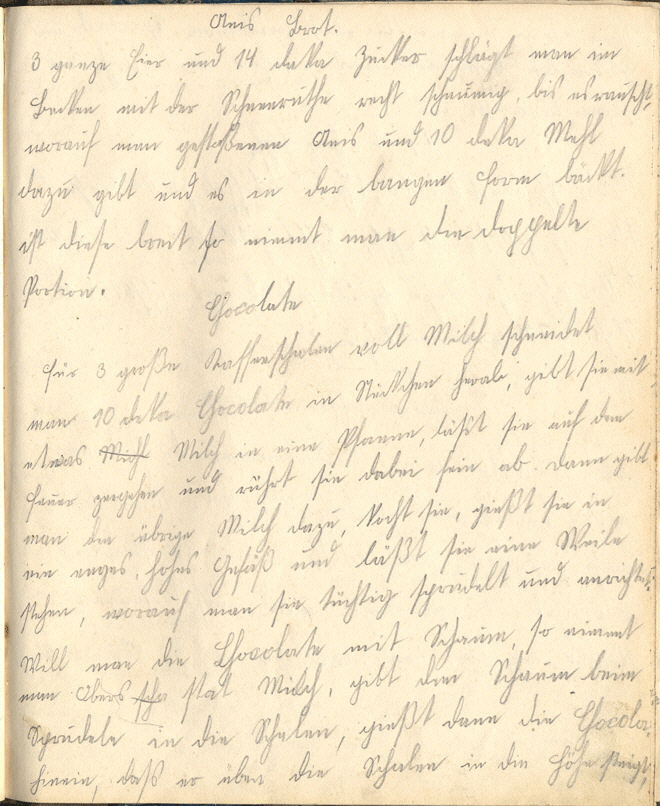 Anis Brot.
3 ganze Eier und 14 deka Zucker schlägt man im
Becken mit der Schneeruthe recht schaumig, bis es rauscht,
worauf man gestoßenen Anis und 10 deka Mehl
dazu gibt und es in der langen Form bäckt.
ist diese breit so nimmt man die doppelte
Portion.
Chocolate
Für 3 große Kaffeeschalen voll Milch schneidet
man 10 deka Chocolate in Stückchen herab, gibt sie mit
etwas Milch in eine Pfanne, läßt sie auf dem
Feuer zergehen und rührt sie dabei fein ab. Dann gibt
man die übrige Milch dazu, kocht sie, gießt sie in
ein enges, hohes Gefäß und läßt sie eine Weile
stehen, worauf man sie tüchtig sprudelt und anrichtet.
Will man die Chocolate mit Schaum, so nimmt
man Obers statt Milch, gibt den Schaum beim
Sprudeln in die Schalen, gießt dann die Chocola
hinein, daß er über die Schalen in die Höhe steigt,